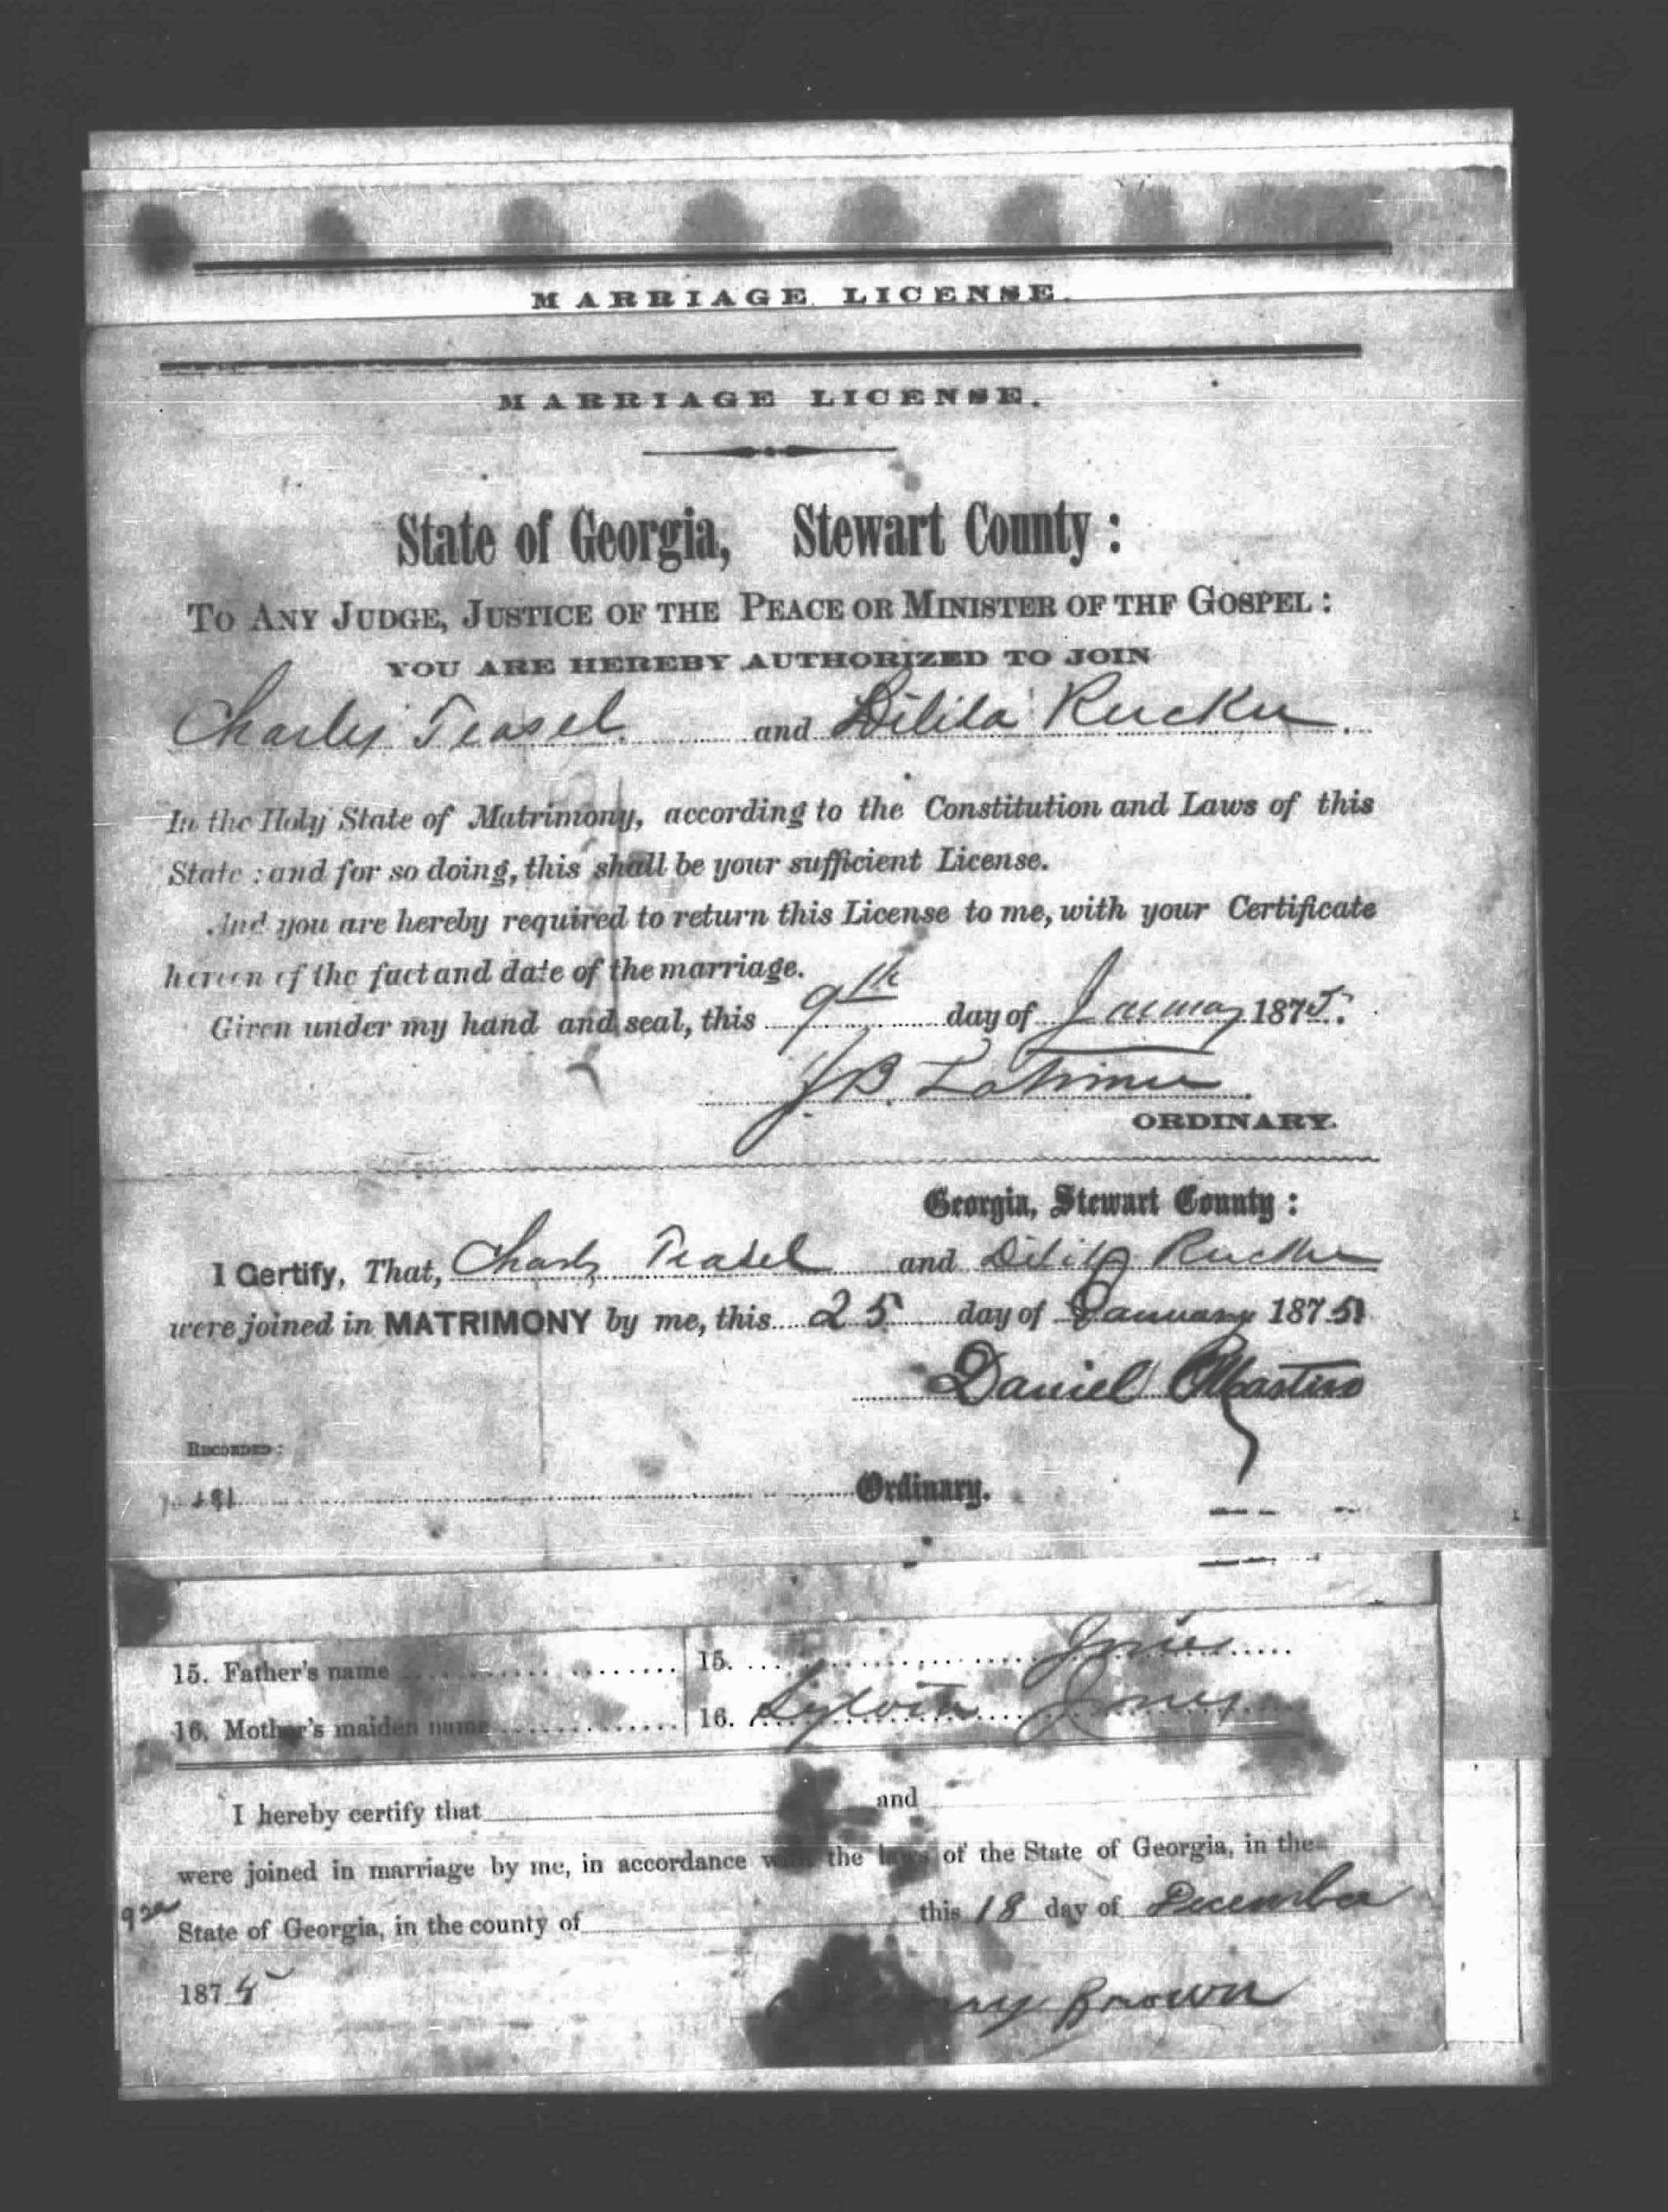 MARRIAGE LICENSE.
MARRIAGE LICENSE.
State of Georgia, Stewart County:
TO ANY JUDGE, JUSTICE OF THE PEACE OR MINISTER OF THF GOSPEL:
YOU ARE HEREBY AUTHORIZED TO JOIN
Charley Teasel and Dilila Rucker
In the Holy State of Matrimony, according to the Constitution and Laws of this
State: and for so doing, this shall be your sufficient License.
And you are hereby required to return this License to me, with your Certificate
hereon of the fact and date of the marriage.
Given under my hand and seal, this 9th day of January 1875.
J B. Latimer
ORDINARY.
Georgia, Stewart County:
I Certify, That, Charly Teasel and Dilila Rucker
were joined in MATRIMONY by me, this 25 day of January 1875
Daniel
RECORDED:
191 Ordinary.
15. Father's name 15. Jones
16. Mother's maiden name 16. Jones
I hereby certify that and
were joined in marriage by me, in accordance with the laws of the State of Georgia, in the
State of Georgia, in the county of this 18 day of December
187
Brown